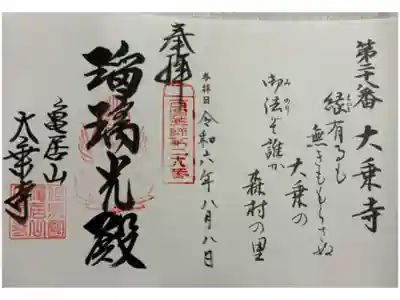 第二十八番 大乗寺
縁有るも
無きももらさぬ
大乗の
御法ぞ誰か
みのり
森村の里
参拝日 令和六年八月八日
奉拝
瑠璃光殿
亀居山
大乗寺